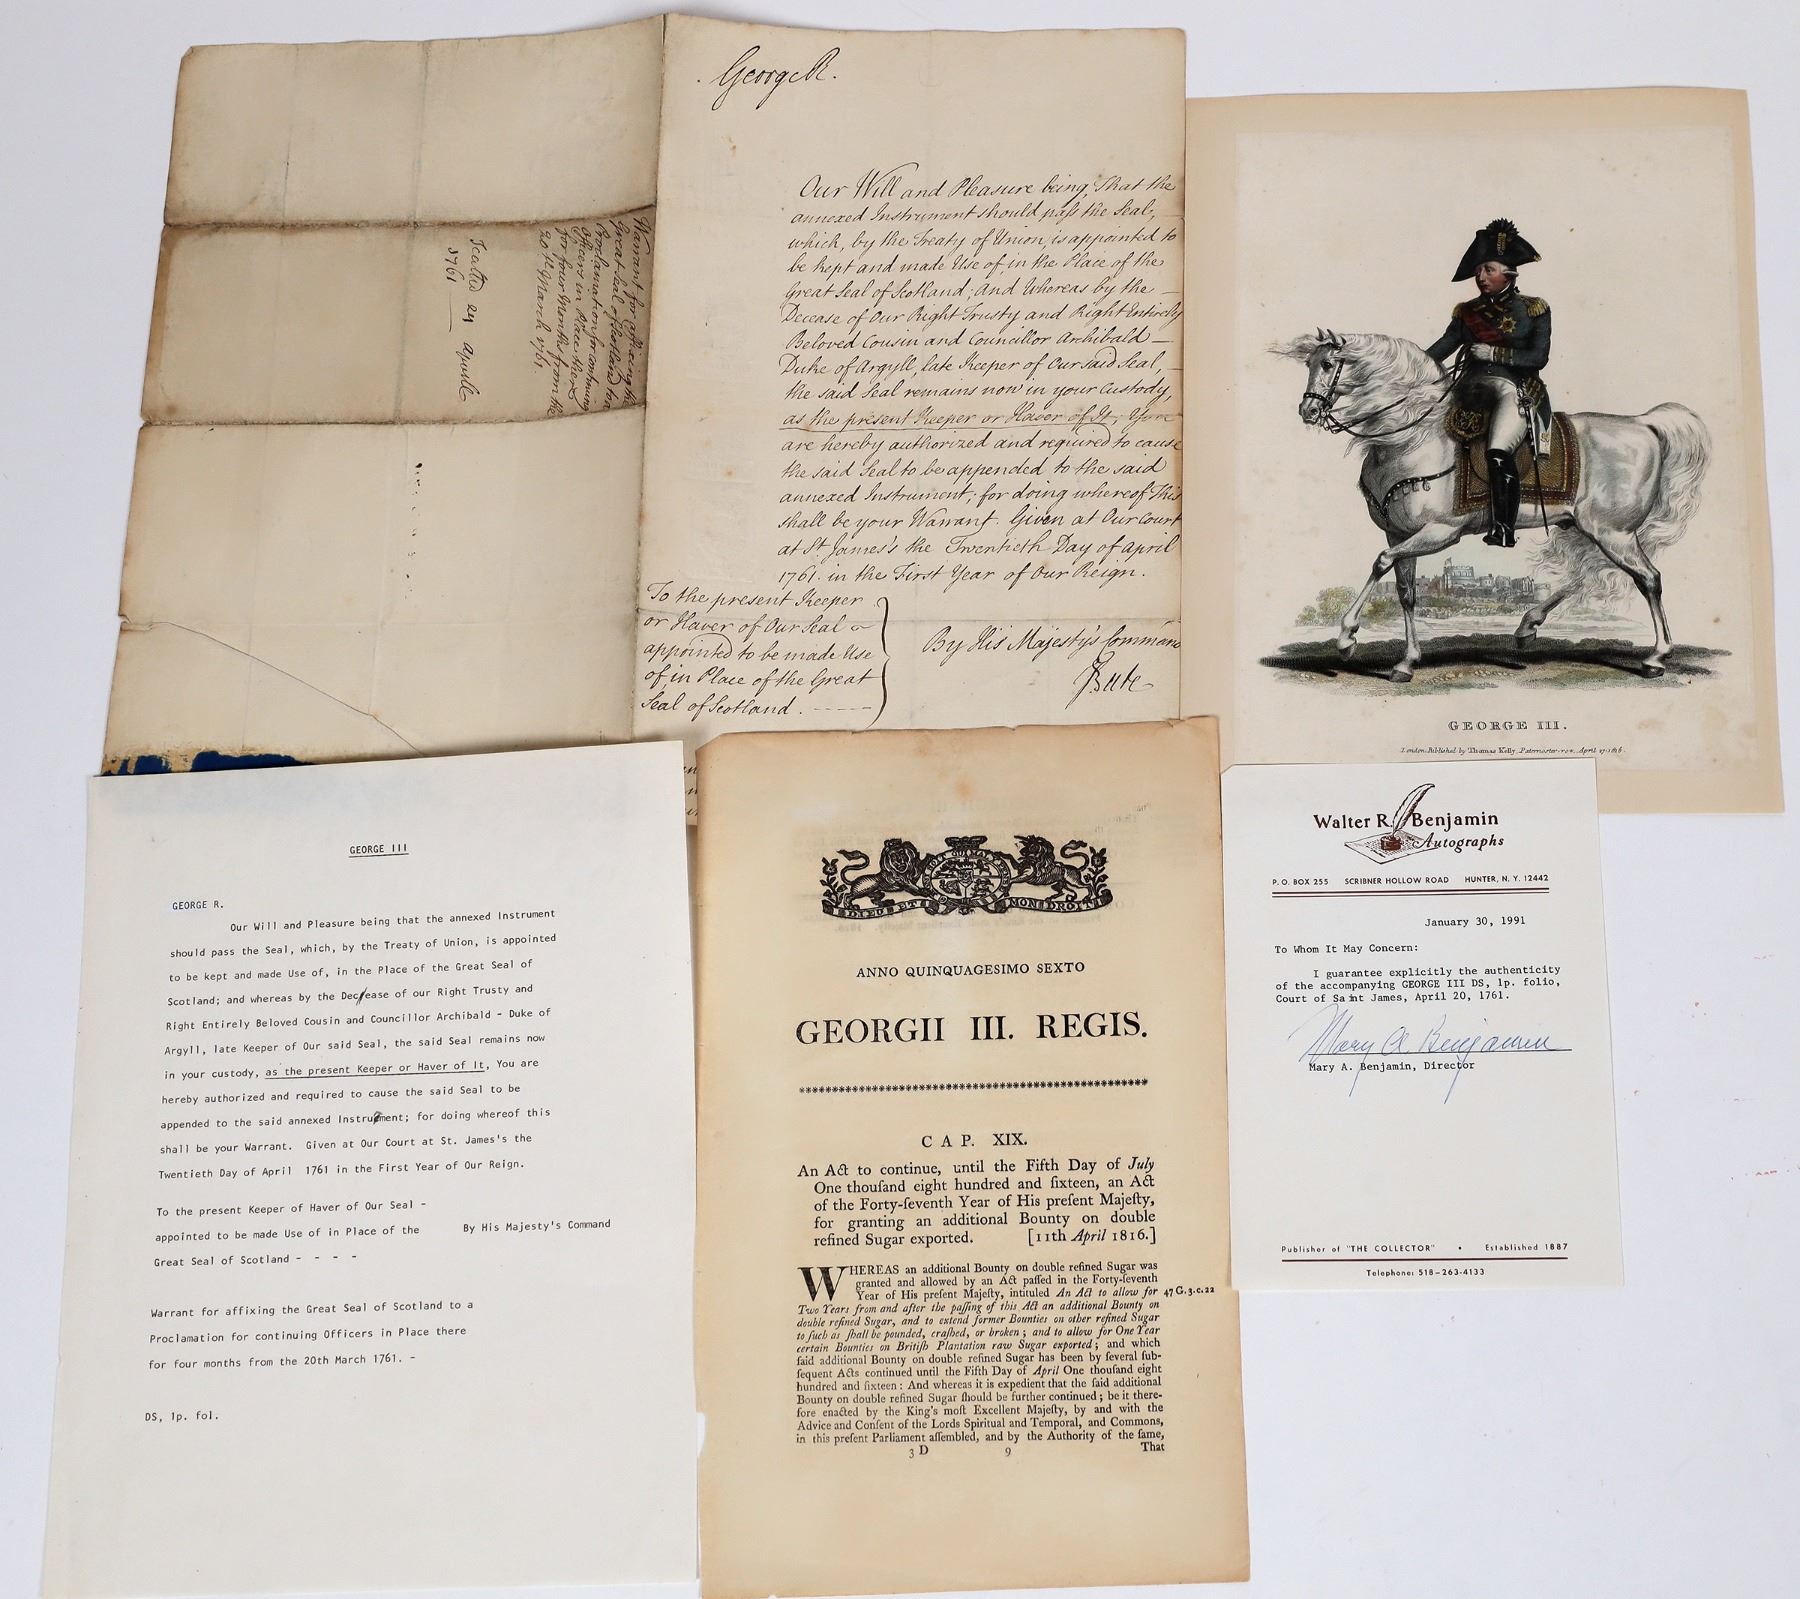 George R.
Our Will and Pleasure being, That the
annexed Instrument should pass the Seal,
which, by the Treaty of Union, is appointed to
be kept and made Use of, in the Place of the
Great Seal of Scotland; And Whereas by the
Decease of Our Right Trusty and Right Entirely
Beloved Cousin and Councillor Archibald
Duke of Argyll, late Keeper of Our said Seal,
the said Seal remains now in your Custody,
as the present Keeper or Haver of It; You
are hereby authorized and required to cause
the said Seal to be appended to the said
annexed Instrument; for doing whereof This
shall be your Warrant. Given at Our Court
at St. James's the Twentieth Day of April
1761. in the First Year of Our Reign.
To the present Keeper
or Haver of Our Seal
appointed to be made Use
of in Place of the Great
Seal of Scotland.
By His Majesty's Command
Bute
Warrant for affixing the
Great Seal of Scotland to a
Proclamation for continuing
Officers in Place there
for four Months from the
20th March 1761.
Sealed 24 Aprile
1761
GEORGE III.
London. Published by Thomas Kelly, Paternoster-row, April 17. 1816.
GEORGE III
GEORGE R.
Our Will and Pleasure being that the annexed Instrument
should pass the Seal, which, by the Treaty of Union, is appointed
to be kept and made Use of, in the Place of the Great Seal of
Scotland; and whereas by the Decease of our Right Trusty and
Right Entirely Beloved Cousin and Councillor Archibald - Duke of
Argyll, late Keeper of Our said Seal, the said Seal remains now
in your custody, as the present Keeper or Haver of It, You are
hereby authorized and required to cause the said Seal to be
appended to the said annexed Instrument; for doing whereof this
shall be your Warrant. Given at Our Court at St. James's the
Twentieth Day of April 1761 in the First Year of Our Reign.
To the present Keeper of Haver of Our Seal -
appointed to be made Use of in Place of the By His Majesty's Command
Great Seal of Scotland - - - -
Warrant for affixing the Great Seal of Scotland to a
Proclamation for continuing Officers in Place there
for four months from the 20th March 1761. -
DS, 1p. fol.
HONI SOIT QUI MAL Y PENSE
DIEU ET MON DROIT
ANNO QUINQUAGESIMO SEXTO
GEORGII III. REGIS.
CAP. XIX.
An Act to continue, until the Fifth Day of July
One thouſand eight hundred and ſixteen, an Act
of the Forty-ſeventh Year of His preſent Majeſty,
for granting an additional Bounty on double
refined Sugar exported. [11th April 1816.]
WHEREAS an additional Bounty on double refined Sugar was
granted and allowed by an Act paſſed in the Forty-ſeventh
Year of His preſent Majeſty, intituled An Act to allow for 47 G. 3. c. 22
Two Years from and after the paſſing of this Act an additional Bounty on
double refined Sugar, and to extend former Bounties on other refined Sugar
to ſuch as ſhall be pounded, craſhed, or broken; and to allow for One Year
certain Bounties on Britiſh Plantation raw Sugar exported; and which
ſaid additional Bounty on double refined Sugar has been by ſeveral ſub-
ſequent Acts continued until the Fifth Day of April One thouſand eight
hundred and ſixteen: And whereas it is expedient that the ſaid additional
Bounty on double refined Sugar ſhould be further continued; be it there-
fore enacted by the King's moſt Excellent Majeſty, by and with the
Advice and Conſent of the Lords Spiritual and Temporal, and Commons,
in this preſent Parliament aſſembled, and by the Authority of the ſame,
3 D 9 That
Walter R. Benjamin
Autographs
P.O. BOX 255 SCRIBNER HOLLOW ROAD HUNTER, N.Y. 12442
January 30, 1991
To Whom It May Concern:
I guarantee explicitly the authenticity
of the accompanying GEORGE III DS, 1p. folio,
Court of Saint James, April 20, 1761.
Mary A. Benjamin
Mary A. Benjamin, Director
Publisher of "THE COLLECTOR" • Established 1887
Telephone: 518-263-4133